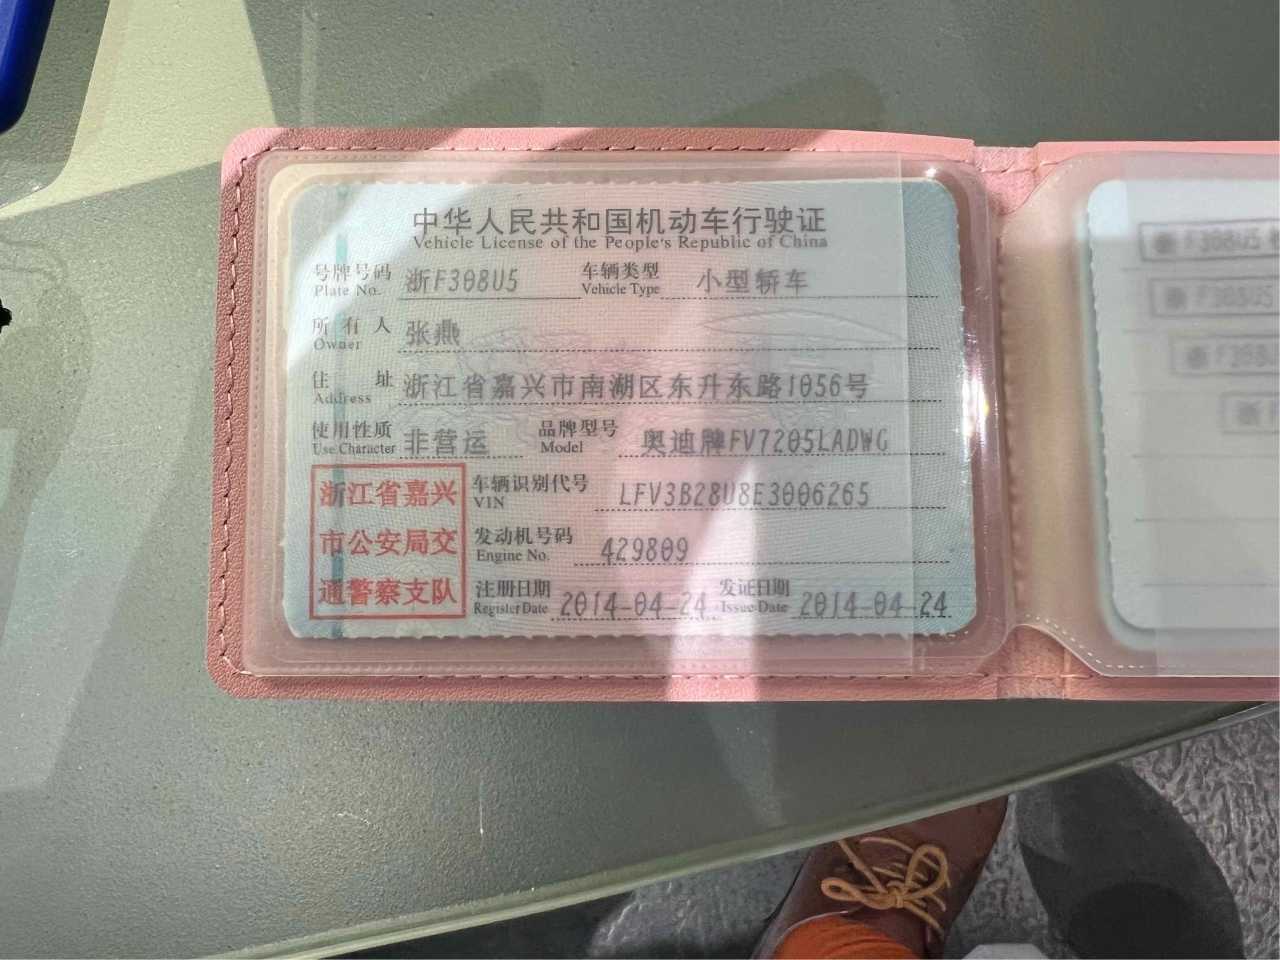 中华人民共和国机动车行驶证
Vehicle License of the People's Republic of China
号牌号码 浙F308U5 车辆类型 小型轿车
Plate No. Vehicle Type
所有人 张燕
Owner
住址 浙江省嘉兴市南湖区东升东路1056号
Address
使用性质 非营运 品牌型号 奥迪牌FV7205LADWG
Use Character Model
浙江省嘉兴
市公安局交
通警察支队
车辆识别代号 LFV3B28U8E3006265
VIN
发动机号码 429809
Engine No.
注册日期 2014-04-24 发证日期 2014-04-24
Register Date Issue Date
F308U5
F308U5